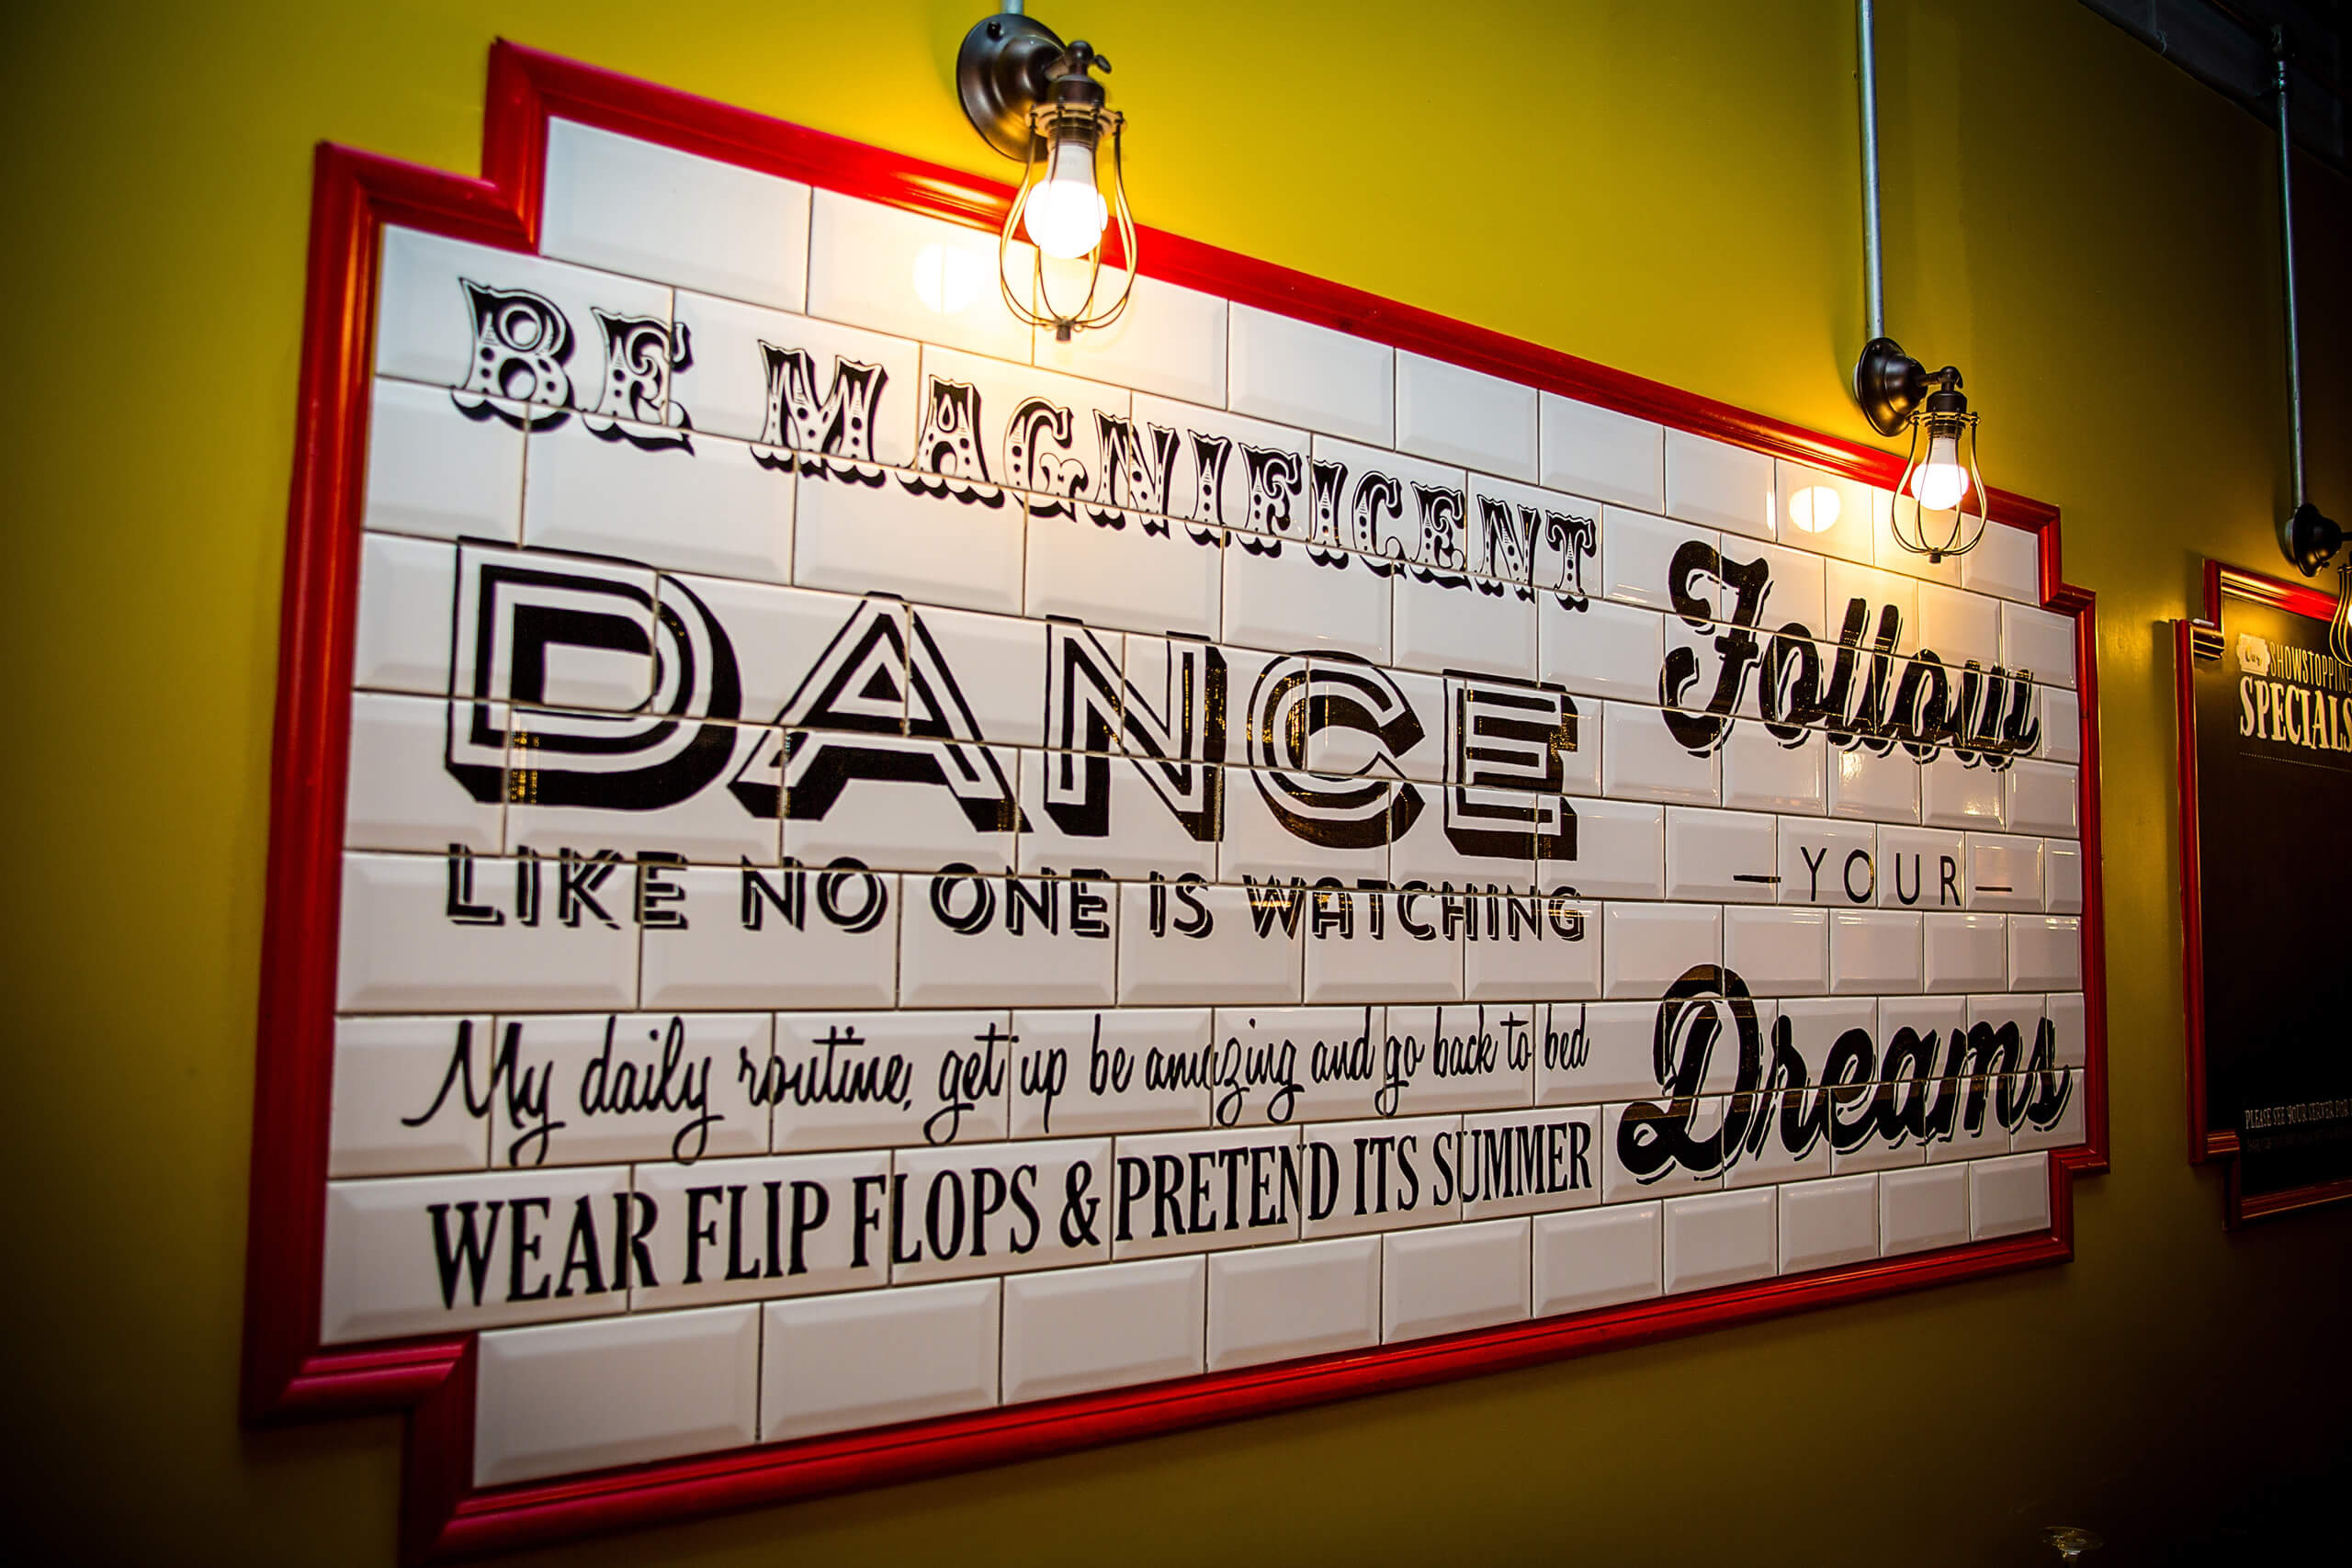 BE MAGNIFICENT
DANCE
LIKE NO ONE IS WATCHING
My daily routine, get up be amazing and go back to bed
WEAR FLIP FLOPS & PRETEND ITS SUMMER
Follow
— YOUR —
Dreams
Our SHOWSTOPPING
SPECIALS
PLEASE SEE YOUR SERVER FOR